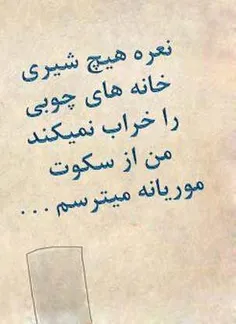 نعره هیچ شیری
خانه های چوبی
را خراب نمیکند
من از سکوت
موریانه میترسم ...